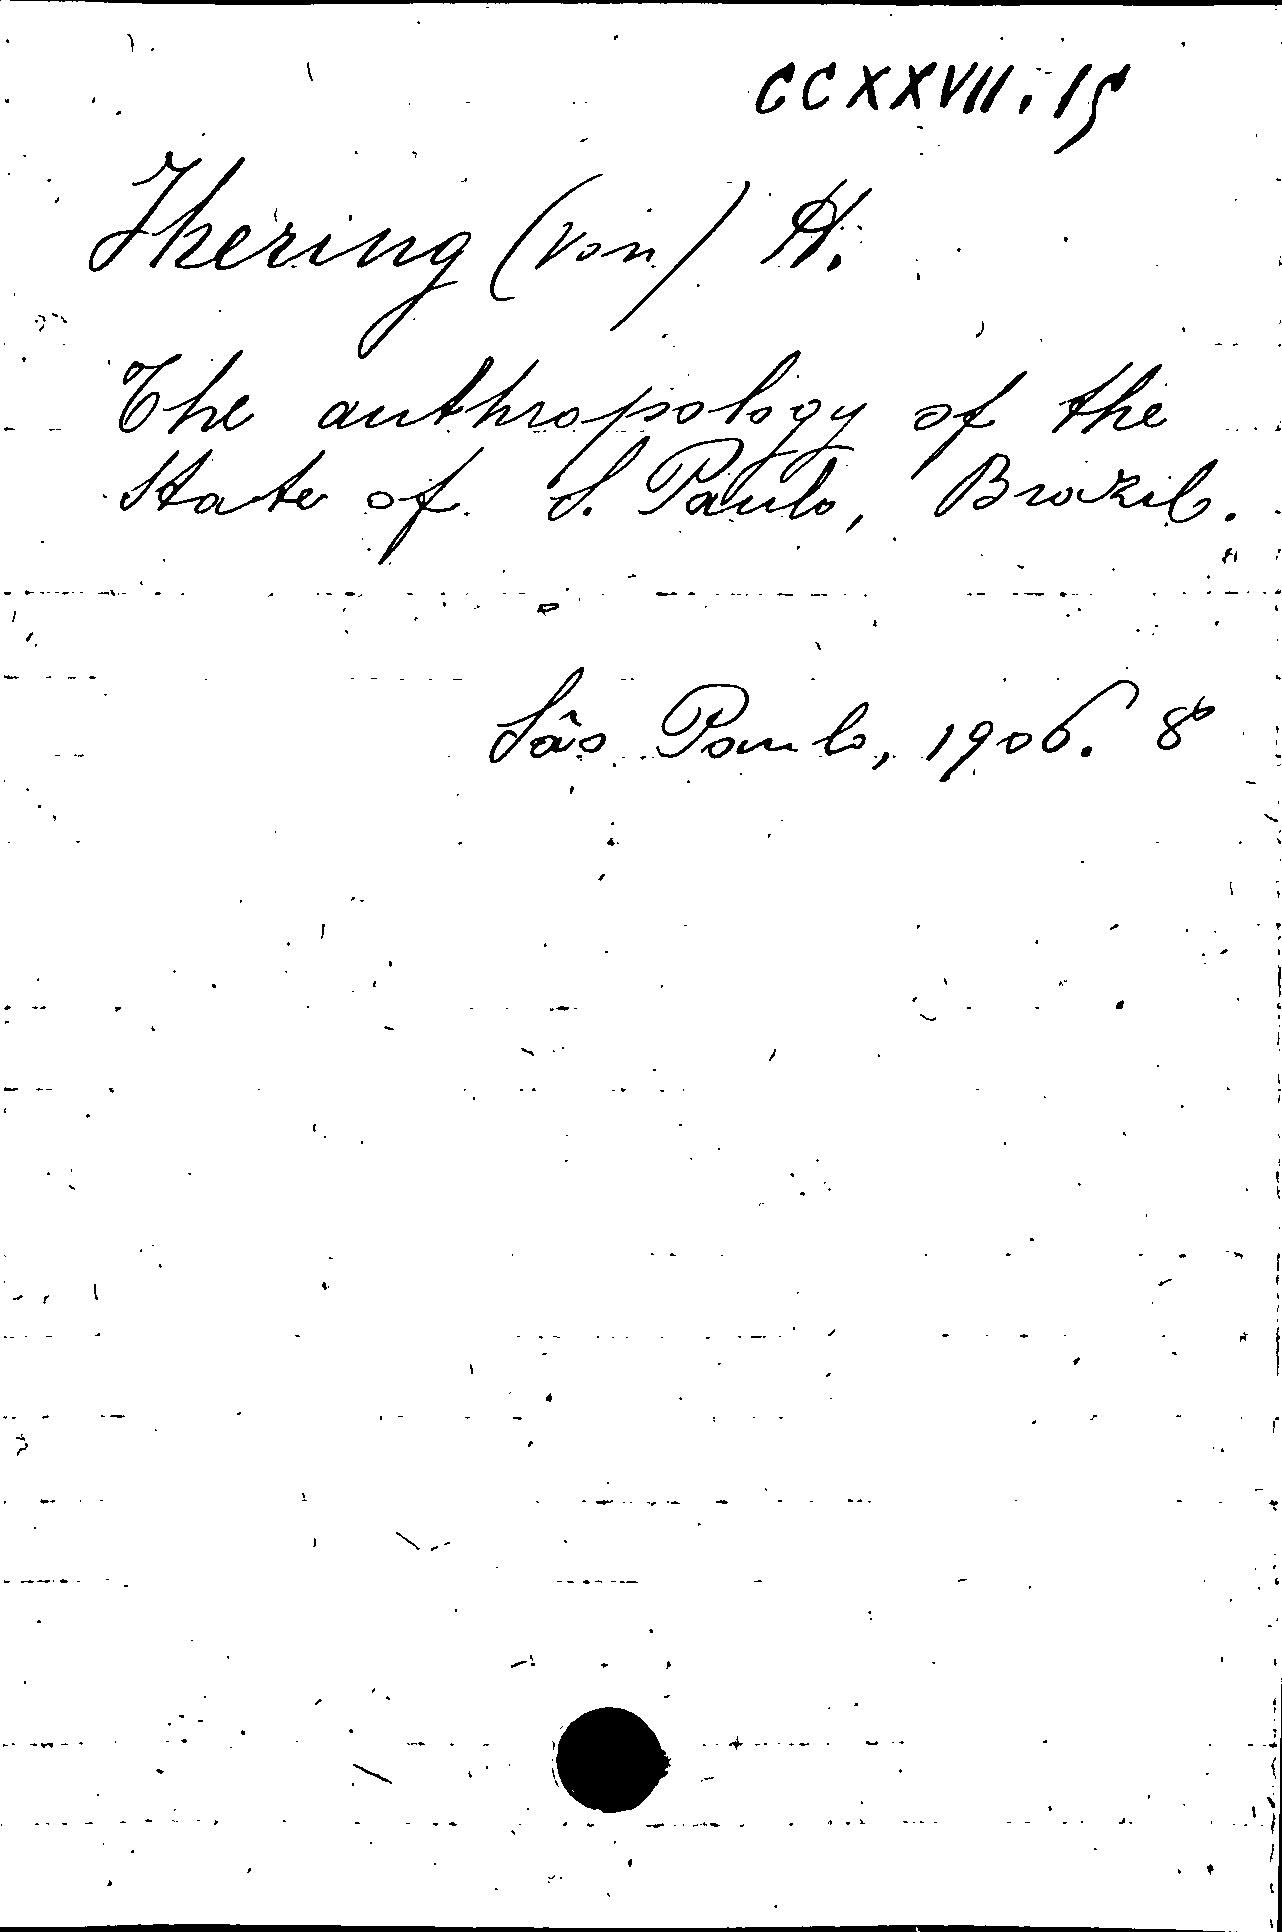 CCXXVII. 15
Ihering (von) H.
The anthropology of the
State of S. Paulo, Brazil.
São Paulo, 1906. 8°